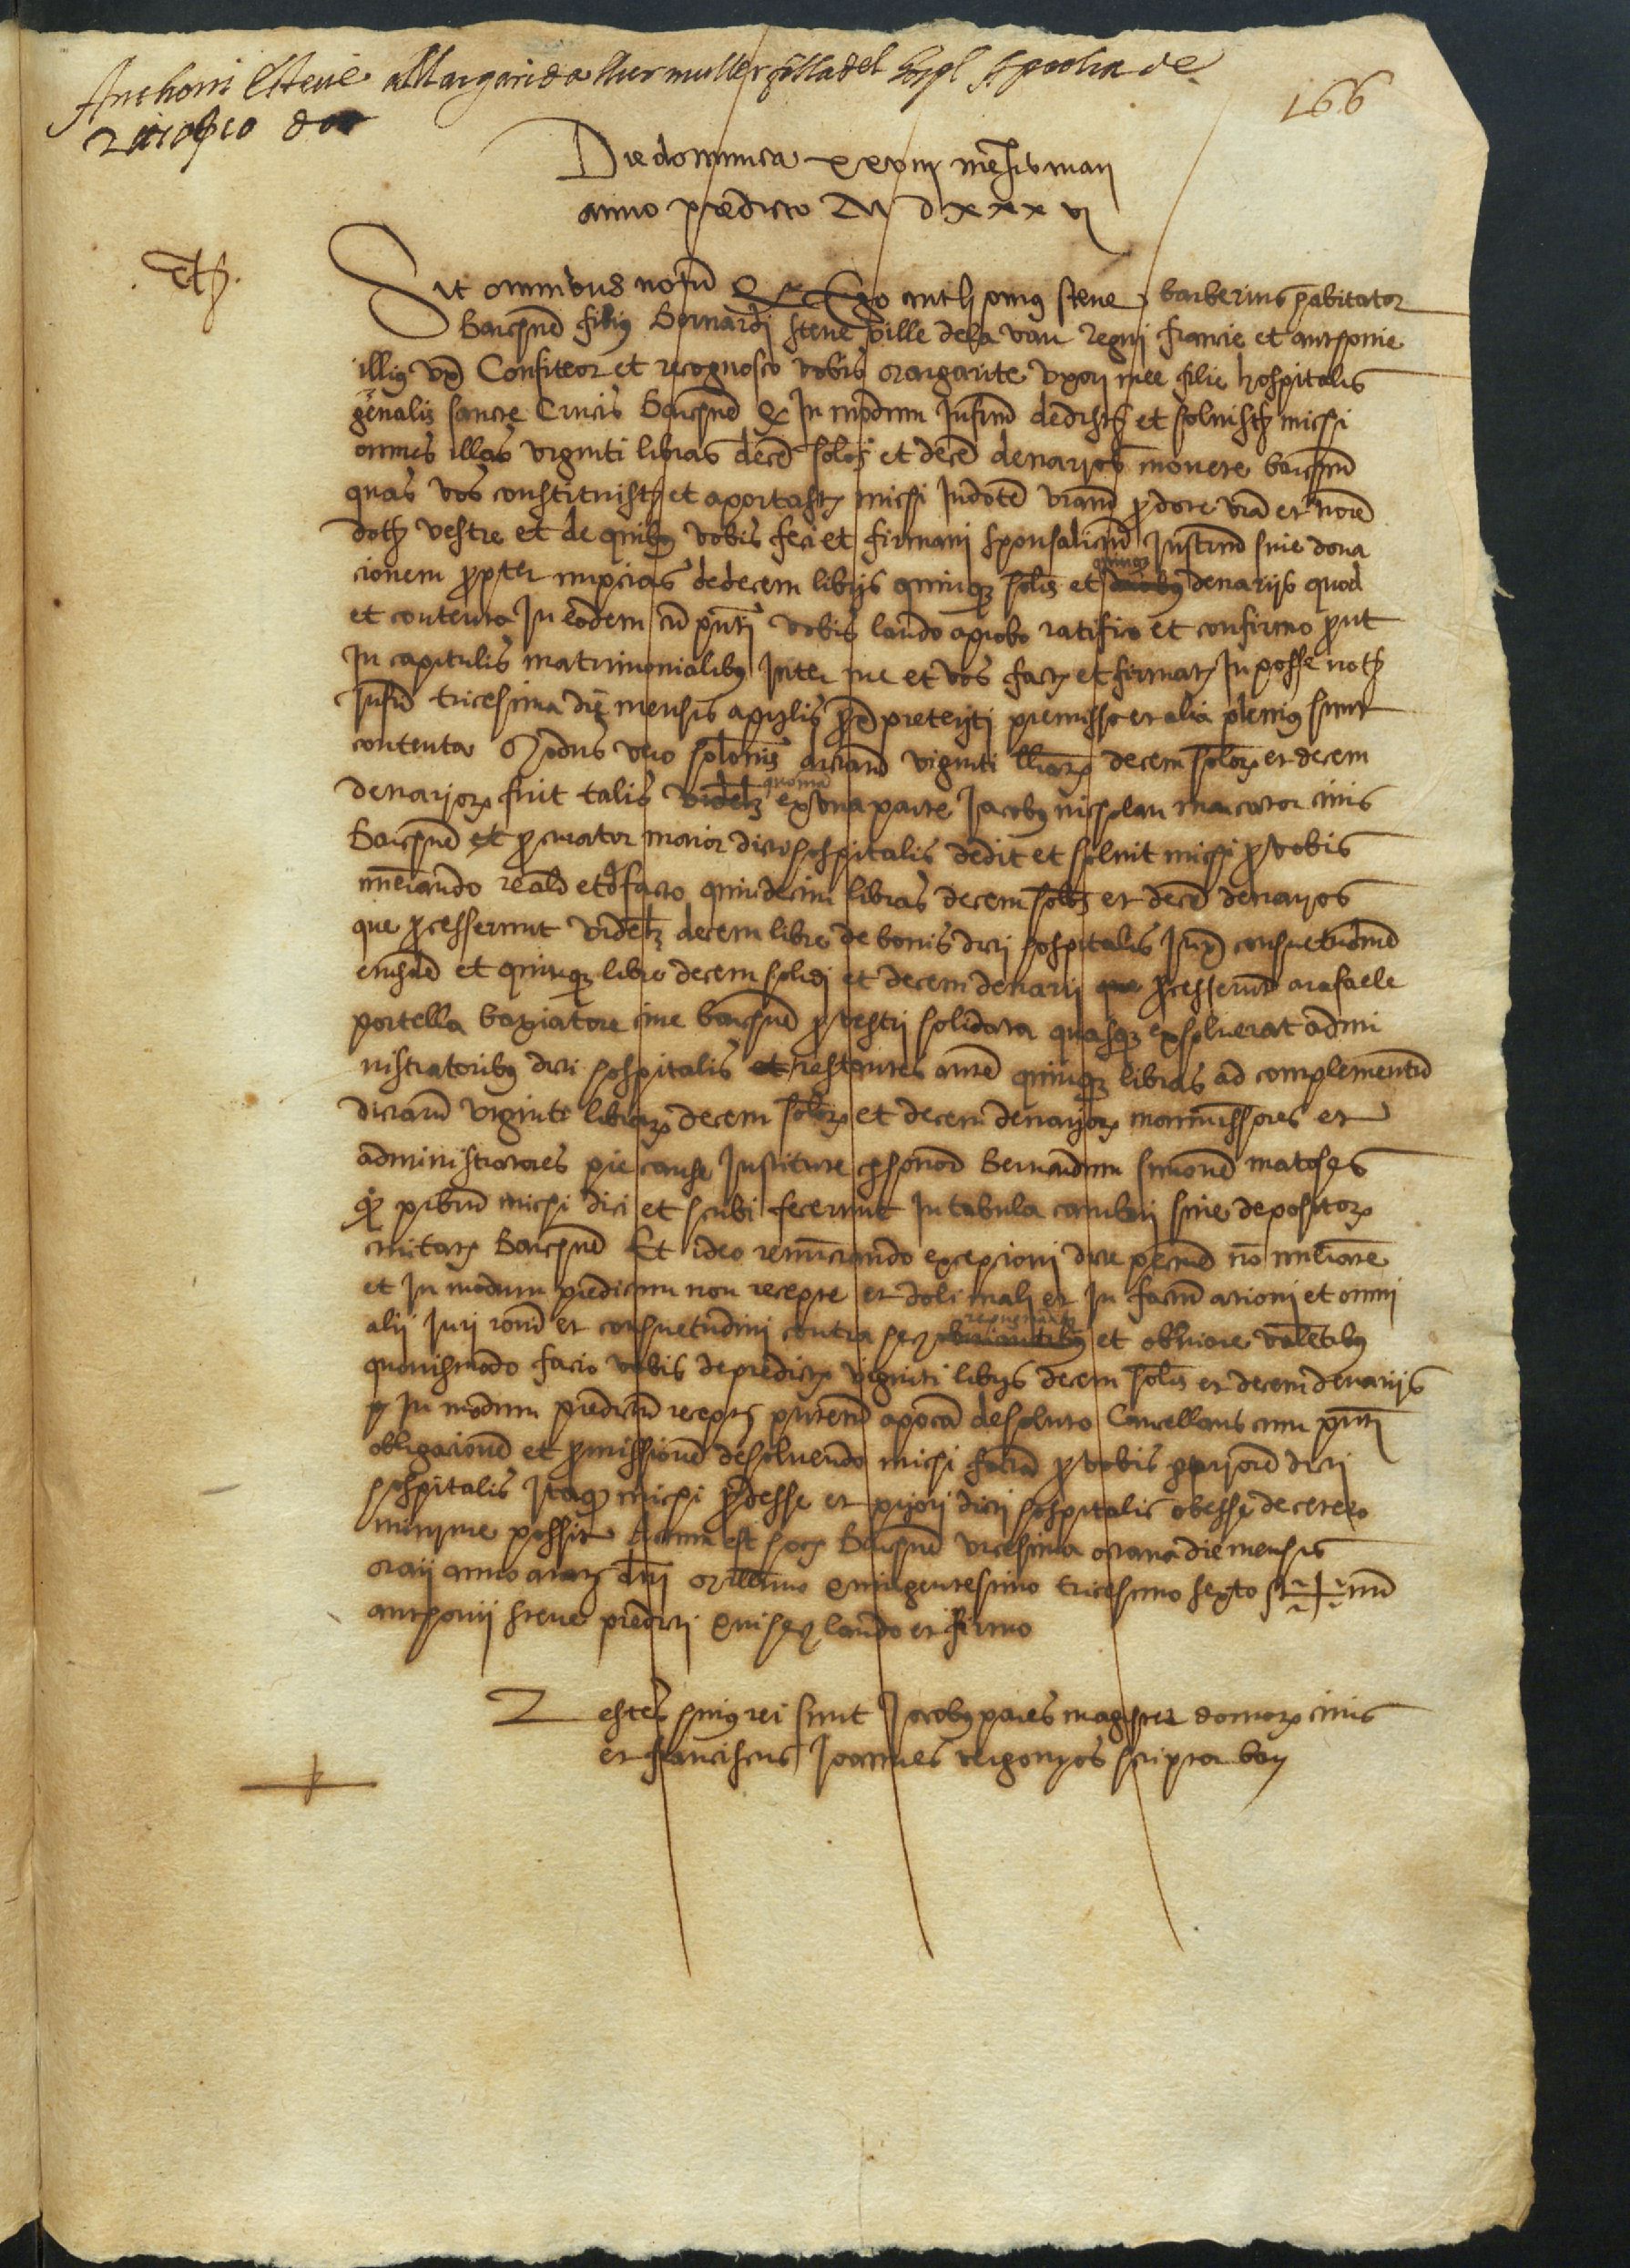 Anthoni Steve a Margarida sa muller filla del hospl apocha de
166
Die dominica xxviii mensis maii
anno predicto M d xxx vi
Sit omnibus notum Q Ego anthonius steve barberius habitator
Barchne filius Bernardi steve ville de la vau Regni francie et anthonie
illius ux Confiteor et recognosco vobis margarite uxori mee filie hospitalis
generalis sancte Crucis Barchne Q In modum Infrm dedistis et solvistis michi
omnes illas viginti libras decem solos et decem denarios monete barchnn
quas vos constituistis et aportastis michi In dotem vram pro dote vra et noie
dotis vestre et de quibus vobis feci et firmavi sponsalicium Instrm sive dona
cionem propter nupcias de decem libris quinque solis et quinque denariis quod
et contenta In eodem cu pnti vobis laudo aprobo ratifico et confirmo prout
In capitulis matrimonialibus Inter me et vos factis et firmatis In posse notis
Infri tricesima die mensis aprilis prox preteriti premissa et alia plenius sunt
contenta Modus vero solonis dictaru viginti librarum decem solor et decem
denariorum fuit talis quoniam ex una parte Jacobus nicholau mercator civis
Barchne et procurator maior dicti hospitalis dedit et solvit michi pro vobis
numerando realr et de facto quindecim libras decem solos et decem denarios
que processerunt videlz decem libre de bonis dicti hospitalis Juxta consuetudine
eiusde et quinque libre decem solidi et decem denarii processerunt a rafaele
portella baxiatore cive barchne pro vestri solidata quasque exsolverat admi
nistratoribus dicti hospitalis restantes autem quinque libras ad complementum
dictaru viginti librarum decem solor et decem denariorum manumissores et
administratores pie cause Institute per honor Bernardum simonem matoses
q pbrm michi dici et scribi fecerunt In tabula cambii sive depositorum
civitatis Barchne Et ideo renunciando exceptioni dicte pecunie no numerate
et In modum predictum non recepte et doli mali et In factum actioni et omni
alii Juri roni et consuetudini contra hec repugnantibus et obviare valentibus
quovismodo facio vobis de predictis viginti libris decem solis et decem denariis
p In modum predictum receptis presentem apocam de soluto Cancellans cum pnti
obligacionem et promissionem de solvendo michi factam pro vobis per priorem dicti
hospitalis Itaque michi prodesse et priori dicti hospitalis obesse de cetero
minime possit Actum est hoc Barchne vicesima octava die mensis
maii anno a nat dni millesimo quingentesimo tricesimo sexto Sig+num
anthonii steve predicti qui hec laudo et firmo
Testes huius rei sunt Jacobus pares magister domorum civis
et franciscus Joannes vergonyos scriptor bar